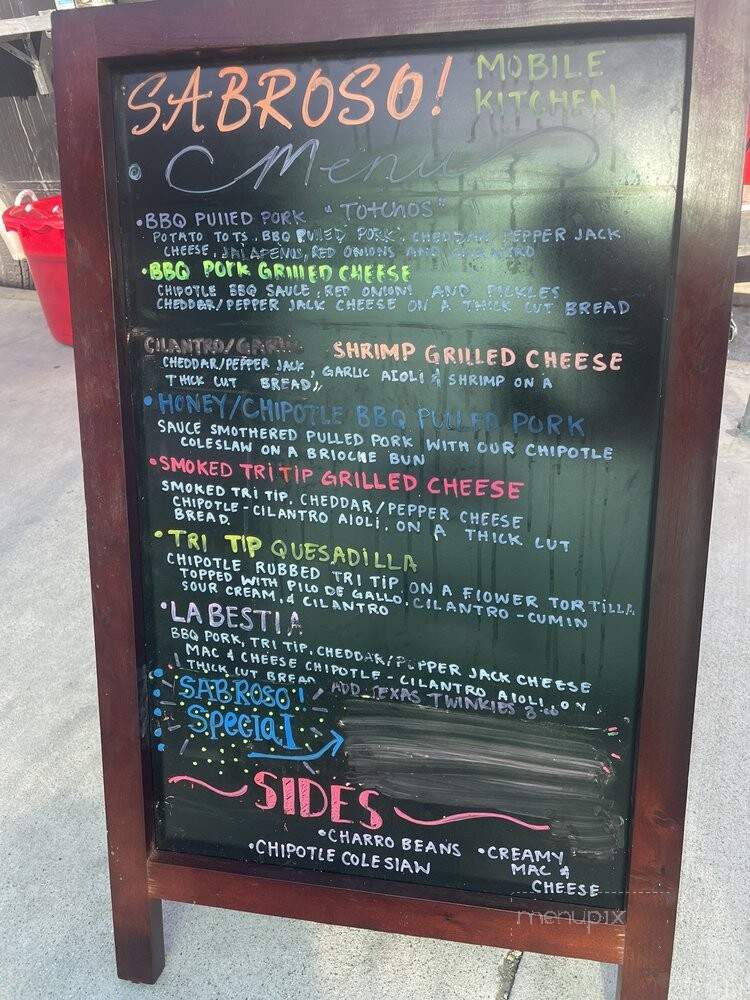 SABROSO! MOBILE
KITCHEN
Menu
•BBQ PULLED PORK "TOtCHOS"
POTATO TOTS, BBQ PULLED PORK, CHEDDAR PEPPER JACK
CHEESE, JALAPENOS, RED ONIONS AND
•BBQ PORK GRILLED CHEESE
CHIPOTLE BBQ SAUCE, RED ONIONS AND PICKLES
CHEDDAR/PEPPER JACK CHEESE ON A THICK CUT BREAD
CILANTRO/GARLIC SHRIMP GRILLED CHEESE
CHEDDAR/PEPPER JACK, GARLIC AIOLI & SHRIMP ON A
THICK CUT BREAD,
•HONEY/CHIPOTLE BBQ PULLED PORK
SAUCE SMOTHERED PULLED PORK WITH OUR CHIPOTLE
COLESLAW ON A BRIOCHE BUN
•SMOKED TRI TIP GRILLED CHEESE
SMOKED TRI TIP, CHEDDAR/PEPPER CHEESE
CHIPOTLE-CILANTRO AIOLI, ON A THICK CUT
BREAD.
•TRI TIP QUESADILLA
CHIPOTLE RUBBED TRI TIP ON A FLOWER TORTILLA
TOPPED WITH PILO DE GALLO, CILANTRO-CUMIN
SOUR CREAM, & CILANTRO
•LA BESTIA
BBQ PORK, TRI TIP, CHEDDAR/PEPPER JACK CHEESE
MAC & CHEESE CHIPOTLE-CILANTRO AIOLI, ON
THICK CUT BREAD ADD TEXAS TWINKIES
SABROSO!
SPECIAL
SIDES
•CHARRO BEANS
•CHIPOTLE COLESLAW
•CREAMY
MAC &
CHEESE
menupix